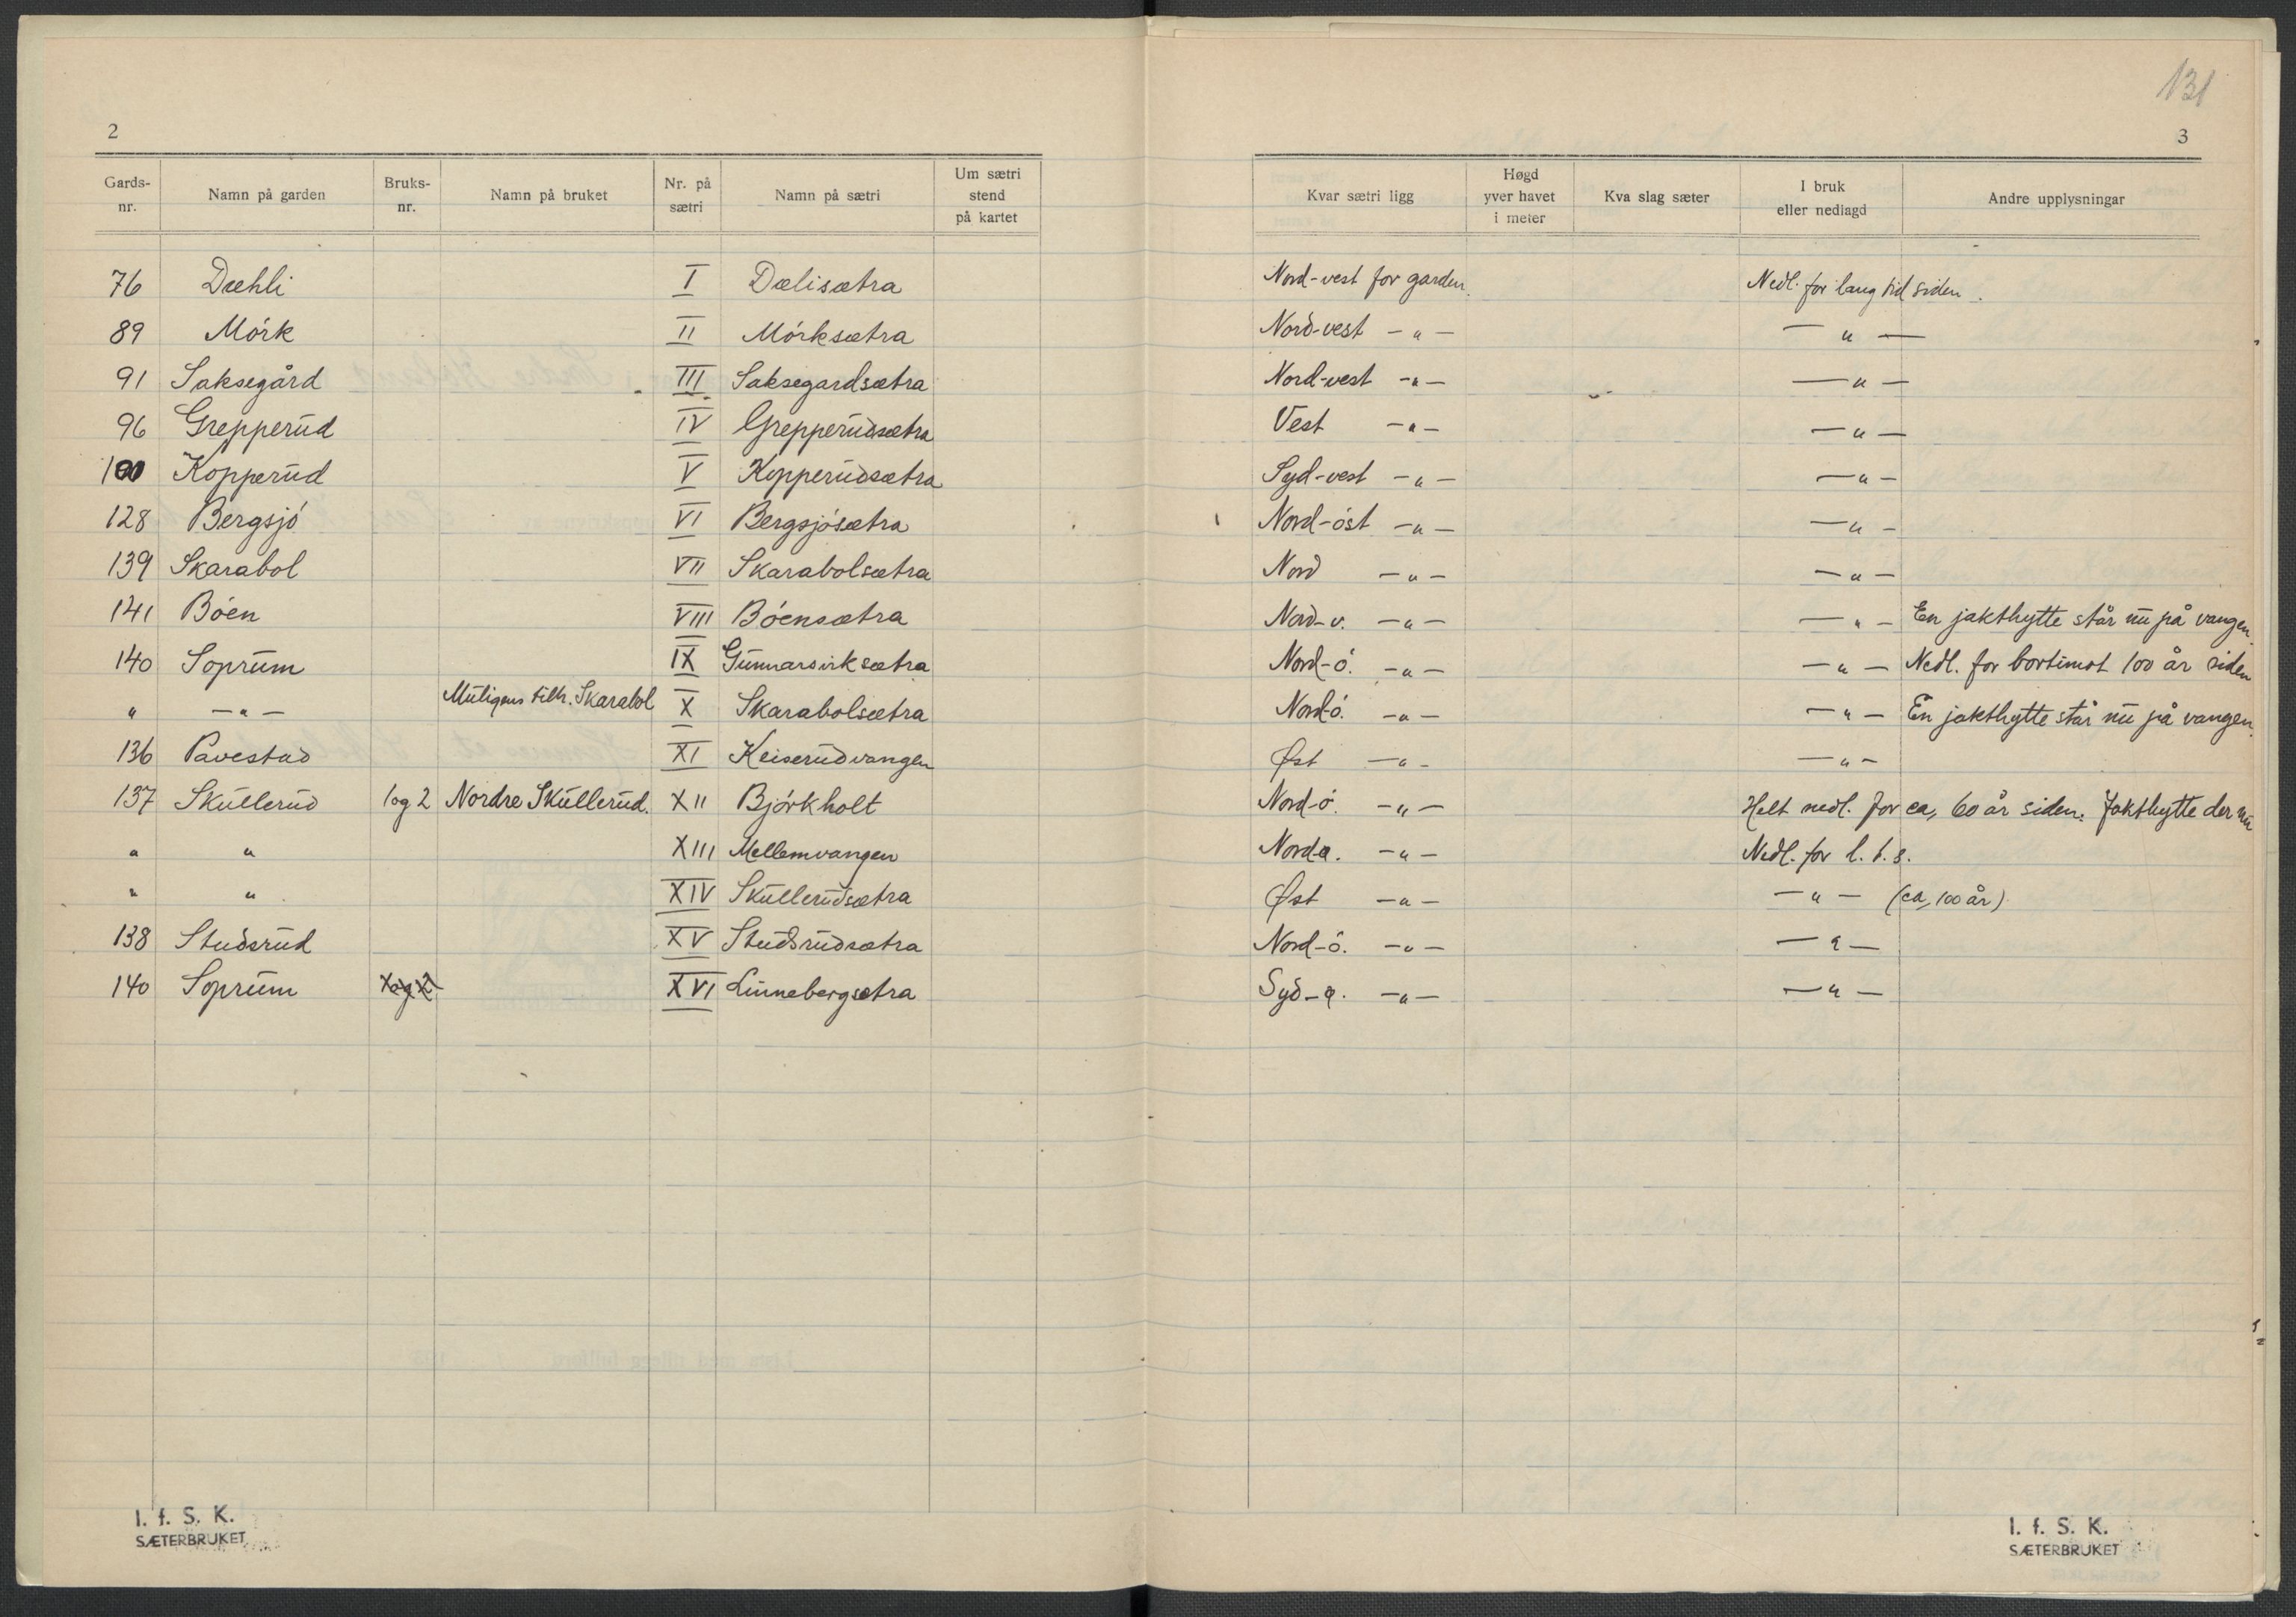 131
2
3
Gards-nr. Namn på garden Bruks-nr. Namn på bruket Nr. på sætri Namn på sætri Um sætri stend på kartet Kvar sætri ligg Høgd yver havet i meter Kva slag sæter I bruk eller nedlagd Andre upplysningar
76 Dæhli I Dælisætra Nord-vest for garden. Nedl. for lang tid siden.
89 Mörk II Mörksætra Nord-vest -"- -"-
91 Saksegård III Saksegardsætra Nord-vest -"- -"-
96 Grepperud IV Grepperudsætra Vest -"- -"-
100 Kopperud V Kopperudsætra Syd-vest -"- -"-
128 Bergsjö VI Bergsjösætra Nord-öst -"- -"-
139 Skarabol VII Skarabolsætra Nord -"- -"-
141 Böen VIII Böensætra Nord-v. -"- -"- En jakthytte står nu på vangen.
140 Soprum IX Gunnarsvirksætra Nord-ö. -"- -"- Nedl. for bortimot 100 år siden
" -"- Muligens tilh. Skarabol X Skarabolsætra Nord-ö. -"- -"- En jakthytte står nu på vangen.
136 Pavestad XI Keiserudvangen Øst -"- -"-
137 Skullerud 1 og 2 Nordre Skullerud. XII Björkholt Nord-ö. -"- Helt nedl. for ca, 60 år siden. Jakthytte der nu
" " XIII Mellemvangen Nord-ø. -"- Nedl. for l. t. s.
" " XIV Skullerudsætra Øst -"- -"- (ca, 100 år)
138 Studsrud XV Studsrudsætra Nord-ö. -"- -"-
140 Soprum 1 og 2 XVI Linnebergsetra Syd-ø. -"- -"-
I. f. S. K.
SÆTERBRUKET
I. f. S. K.
SÆTERBRUKET